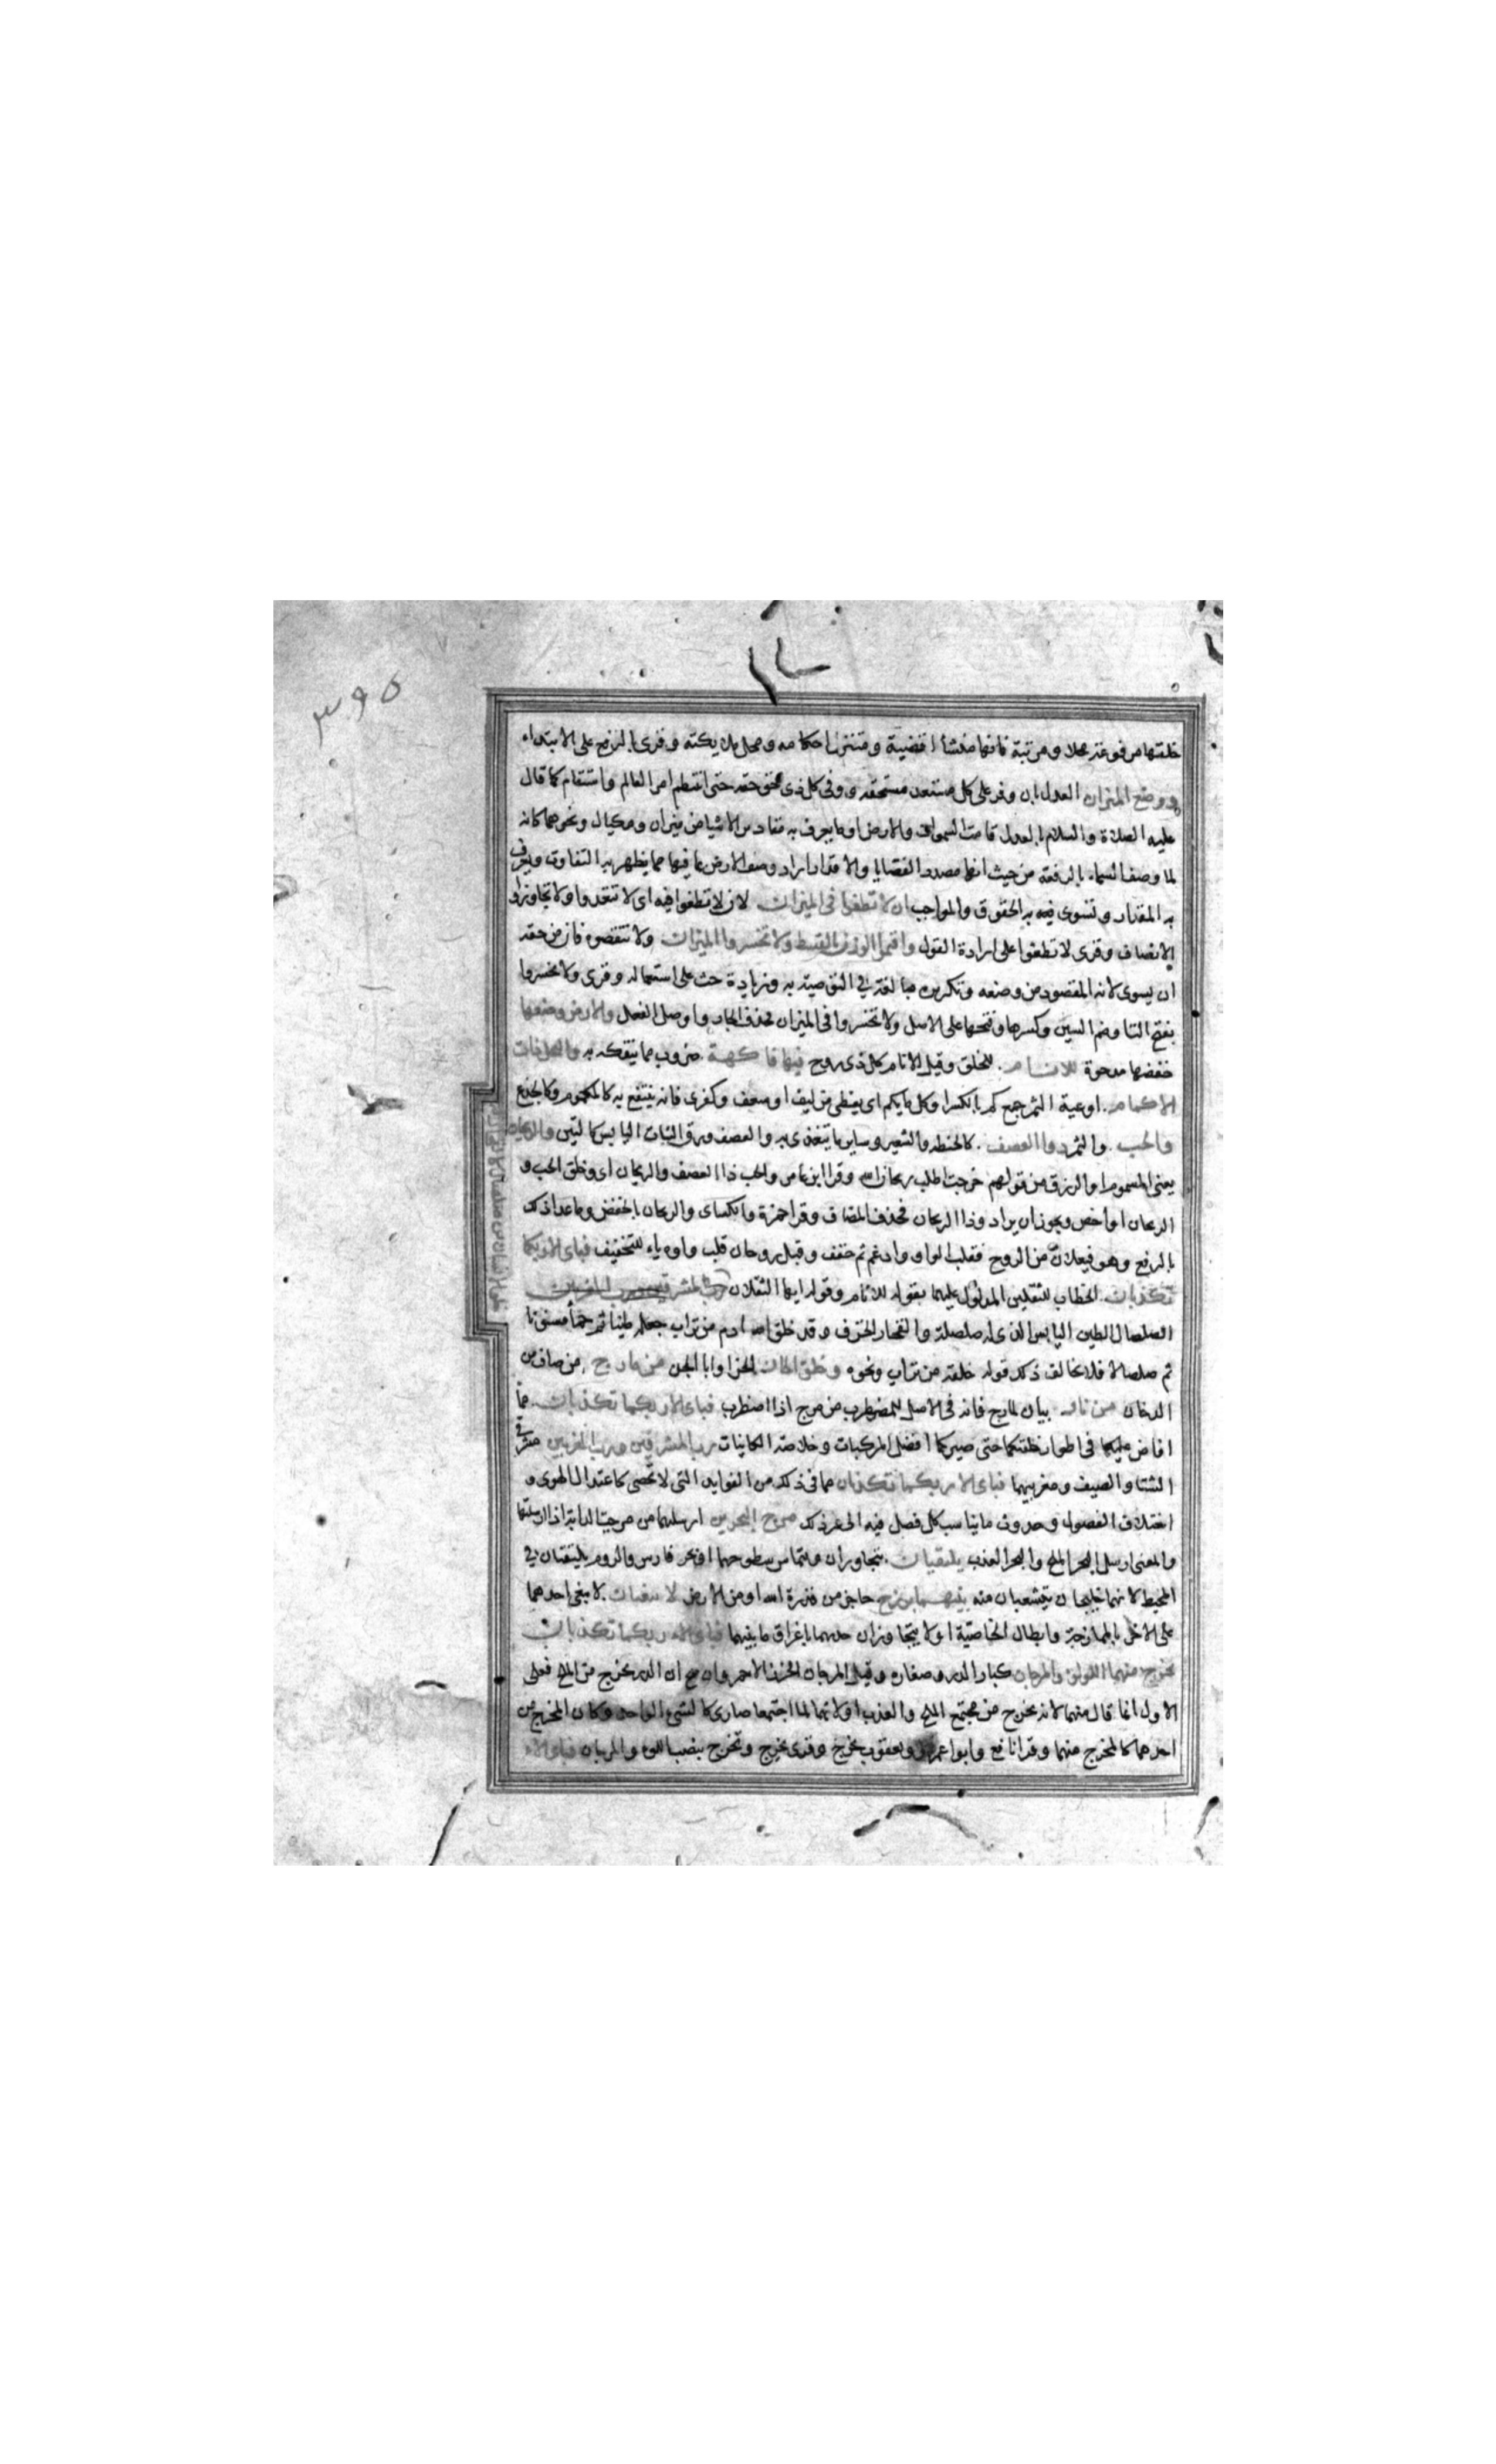 ٣٩٥
خلقها مرفوعة محلا ومرتبة فانها منشأ اقضيته ومتنزل احكامه ومحل ملايكته وقرى بالرفع على الابتداء
ووضع الميزان العدل بان وفر على كل مستعد مستحقه ووفى كل ذى حق حقه حتى انتظم امر العالم واستقام كما قال
عليه الصلاة والسلام بالعدل قامت السموات والارض او ما يعرف به مقادير الاشيا من ميزان ومكيال ونحوهما كانه
لما وصف السماء بالرفعة من حيث انها مصدر القضايا والاقدار اراد وصف الارض بما فيها مما يظهر به التفاوت ويعرف
به المقدار وتسوى به الحقوق والمواجب ان لا تطغوا فى الميزان لان لا تطغوا فيه اى لا تتعدوا ولا تجاوزوا
الانصاف وقرى لا تطغوا على ارادة القول واقيموا الوزن بالقسط ولا تخسروا الميزان ولا تنقصوه فان من حقه
ان يسوى لانه المقصود من وضعه وتكريره مبالغة في التوصية به وزيادة حث على استعماله وقرى ولا تخسروا
بفتح التا وضم السين وكسرها وفتحها على الاصل ولا تخسروا فى الميزان فحذف الجار واوصل الفعل والارض وضعها
خفضها مدحوة للانام للخلق وقيل الانام كل ذى روح فيها فاكهة ضروب مما يتفكه به والنخل ذات
الاكمام اوعية الثمر جمع كم بالكسر او كل ما يكم اى يغطى من ليف او سعف وكفرى فانه ينتفع به كالمكموم وكالجذع
والحب والثمر ذوا العصف كالحنطه والشعير وساير ما يتغذى به والعصف ورق النبات اليابس كالتبن والريحان
يعنى المشموم او الرزق من قولهم خرجت اطلب ريحان الله وقرا ابن عامر والحب ذا العصف والريحان اى وخلق الحب و
الريحان او اخص ويجوز ان يراد وذا الريحان فحذف المضاف وقرا حمزة والكساى والريحان بالخفض وما عدا ذلك
بالرفع وهو فيعلان من الروح فقلبت الواو وادغم ثم خفف وقيل روحان قلب واوه ياء للتخفيف فباى الا ربكما
تكذبان الخطاب للثقلين المدلول عليهما بقوله للانام وقوله ايها الثقلان رب المشرقين ورب المغربين
الصلصال الطين اليابس الذى له صلصلة والفخار الخزف وقد خلق الله ادم من تراب جعله طينا ثم حمأ مسنونا
ثم صلصالا فلا يخالف ذلك قوله خلقه من تراب ونحوه وخلق الجان الجن او ابا الجن من مارج من صاف من
الدخان من نار بيان لمارج فانه فى الاصل للمضطرب من مرج اذا اضطرب فباى الا ربكما تكذبان مما
افاض عليكما فى اطوار خلقتكما حتى صيركما افضل المركبات وخلاصة الكاينات رب المشرقين ورب المغربين مشرقى
الشتا والصيف ومغربيهما فباى الا ربكما تكذبان مما فى ذلك من الفوايد التى لا تحصى كاعتدال الهوى و
اختلاف الفصول وحدوث ما يناسب كل فصل فيه الى غير ذلك مرج البحرين ارسلهما من مرجت الدابة اذا ارسلتها
والمعنى ارسل البحر الملح والبحر العذب يلتقيان يتجاوران ويتماس سطوحهما او بحر فارس والروم يلتقيان في
المحيط لانهما خليجان يتشعبان منه بينهما برزخ حاجز من قدرة الله او من الارض لا يبغيان لا يبغى احدهما
على الاخر بالممازجة وابطال الخاصية او لا يتجاوزان حديهما باغراق ما بينهما فباى الاء ربكما تكذبان
يخرج منهما اللولؤ والمرجان كبار الدر وصغاره وقيل المرجان الخرز الاحمر وان صح ان الدر يخرج من الملح فعلى
الاول انما قال منهما لانه يخرج من مجتمع الملح والعذب او لانهما لما اجتمعا صارا كالشئ الواحد وكان المخرج من
احدهما كالمخرج منهما وقرا نافع وابوا عمرو ويعقوب يخرج وقرى يخرج ونخرج بنصب اللولو والمرجان فباى الاء
خلق الانسان من صلصال كالفخار